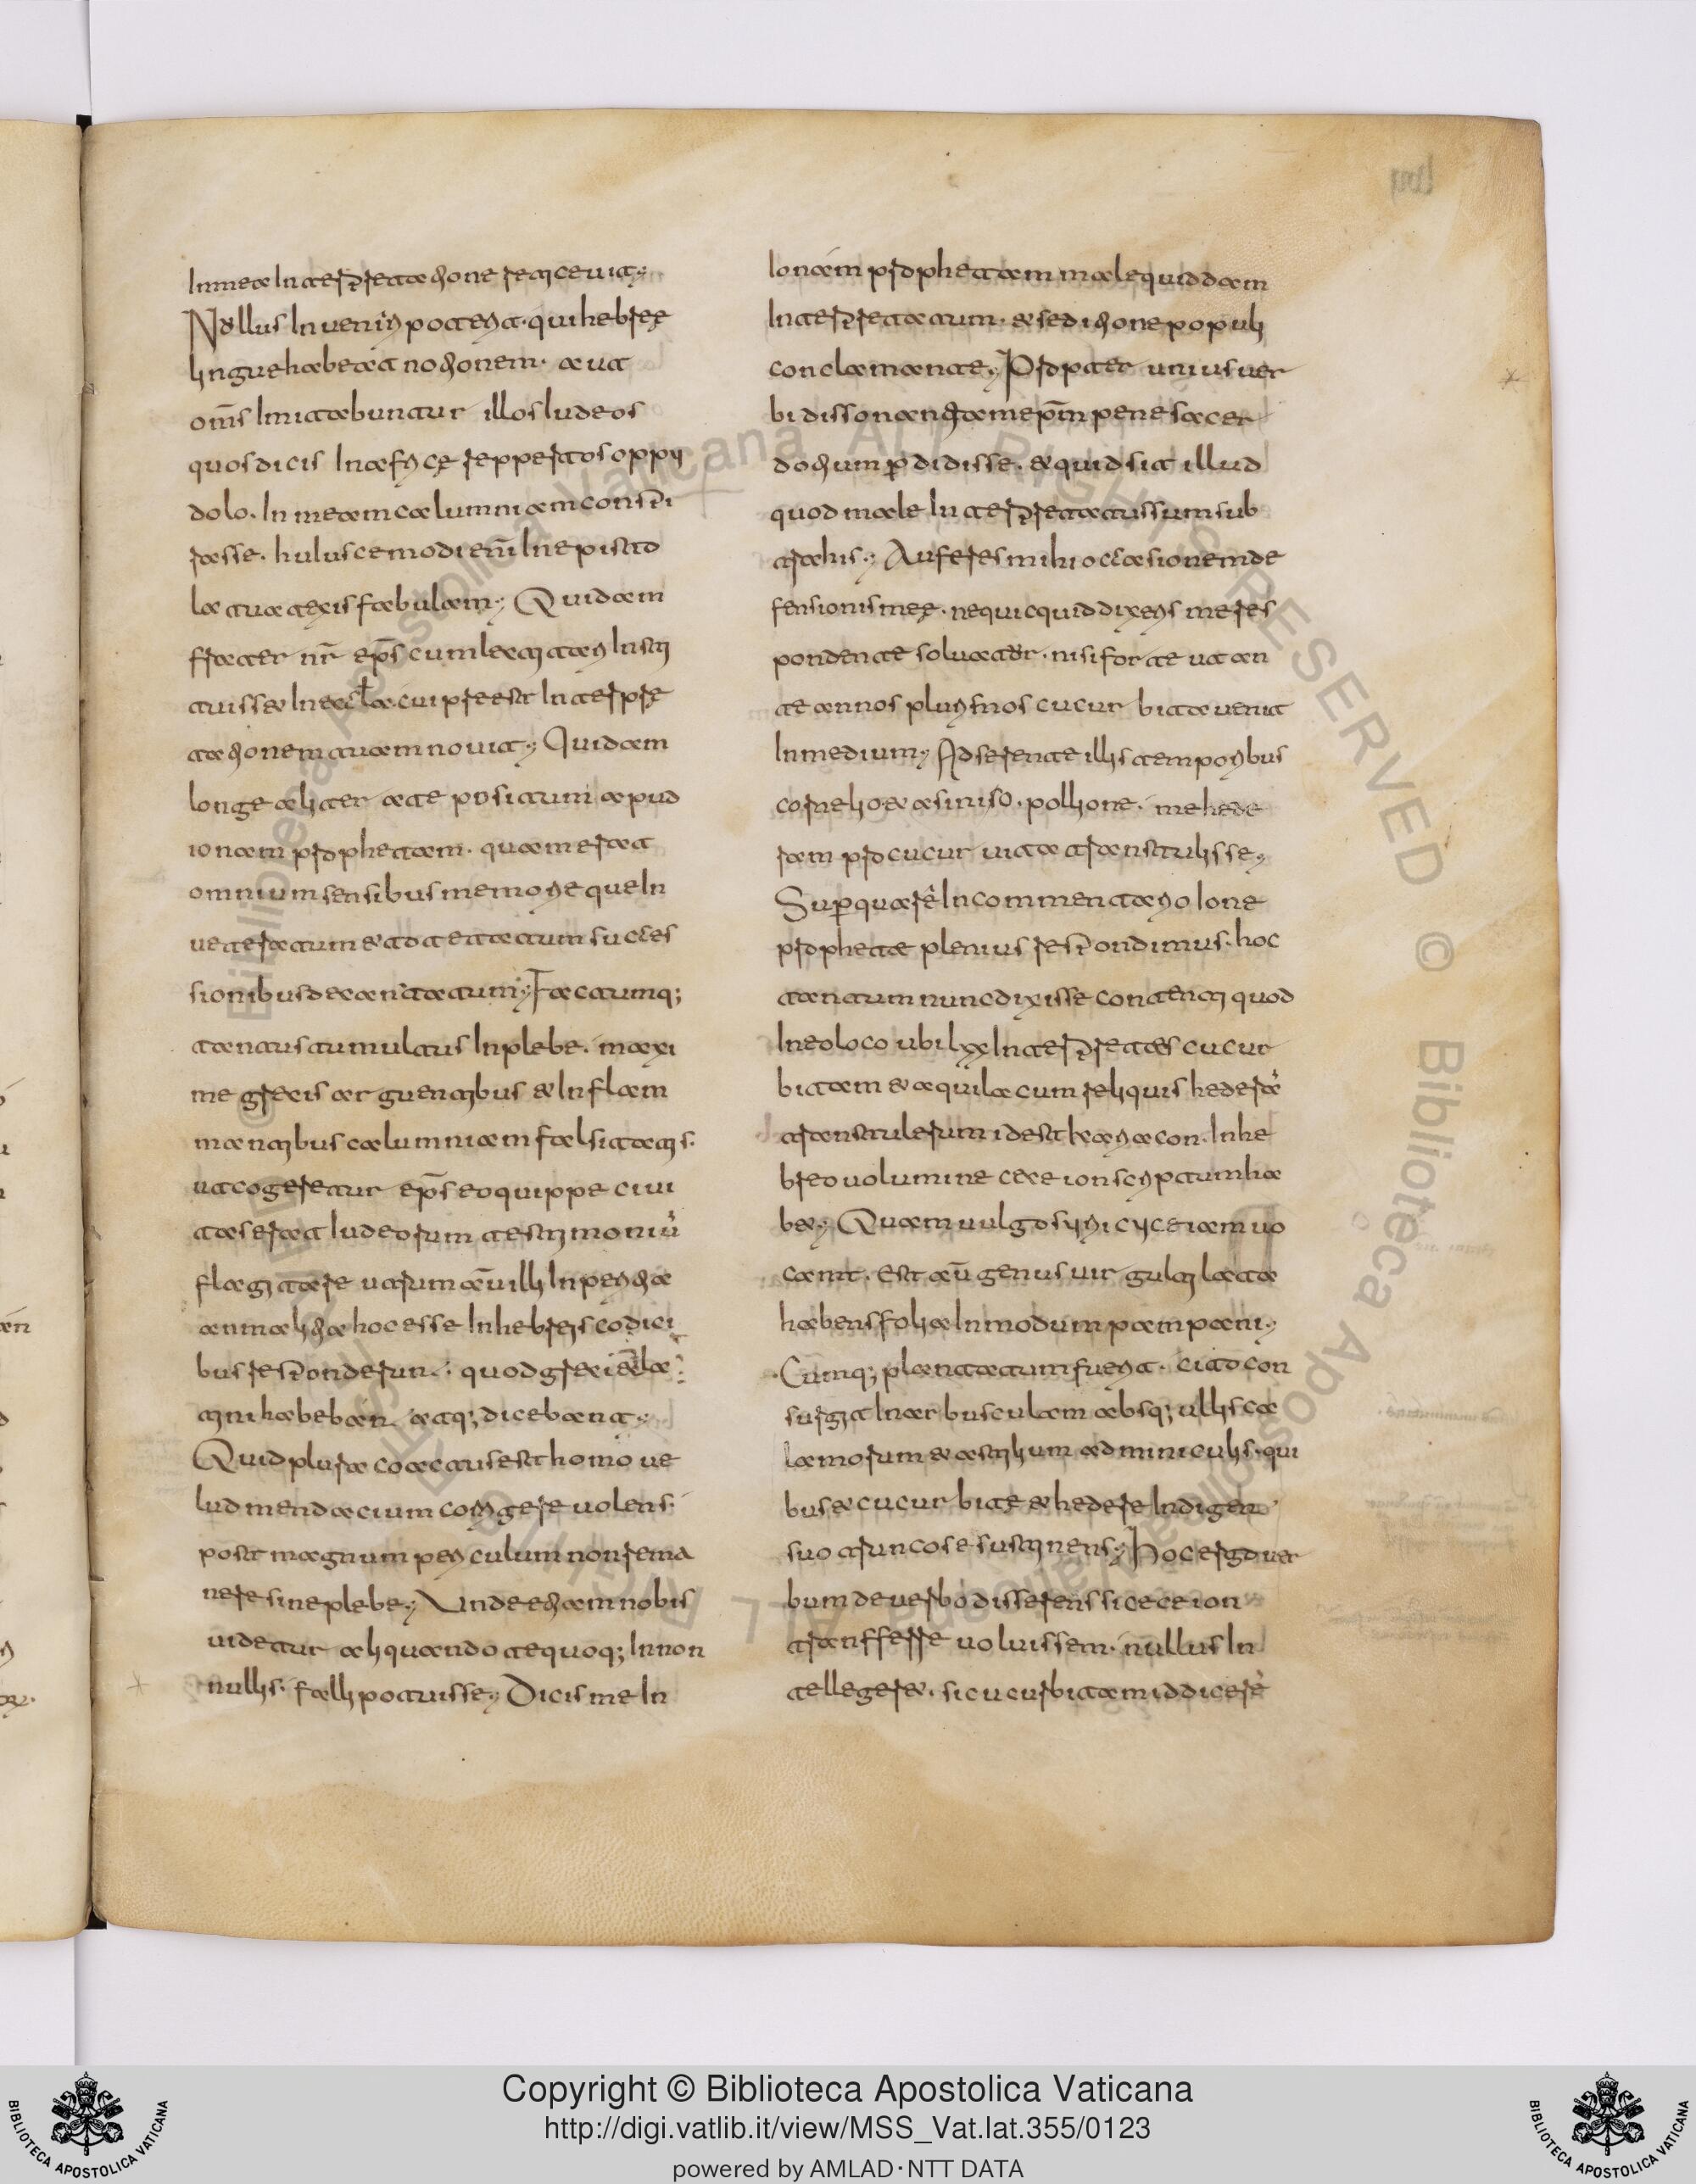 In mea interpretatione reticeuit;
Nullus inueniri poterit. qui hebreę
lingue habeat notionem. aut
om̄s Imitabuntur illos Iudeos
quos dicis In africę reppertos oppi
dolo. In meam calumniam conspi
rasse. huiuscemodi eni͂ In episto
la tua texis fabulam; Quidam
frater nr̄ ep̄s cum lectitari Insti
tuisset In eccl̄a cui preest Interpre
tationem tuam nouit; Quidam
longe aliter a te positum apud
ionam prophetam. quam erat
omnium sensibus memorieque In
ueteratum & tot etatatum succes
sionibus decantatatum; Factumq;
tantus tumultus In plebe. maxi
me grecis arguentibus & Inflam
mantibus calumniam falsitatis.
ut cogeretur ep̄s eo quippe ciui
tas erat Iudeorum testimoniu͂
flagitare utrum au͂ illi In peritia
an malitia hoc esse In hebreis codici
bus responderun. quod greci & la
tini habeban atq; diceban t;
Quid plura coactus est homo ue
lud mendacium corrigere uolens.
post magnum periculum non rema
nere sine plebe; Unde etiam nobis
uidetur aliquando te quoq; In non
nullis. falli potuisse; Dicis me In
Ionam prophetam male quiddam
Interpretatum. & seditione populi
conclamante; Propter unius uer
bi dissonantiam ep̄m pene sacer
dotium p̄didisse. & quid sit illud
quod male Interpretatus sum sub
trahis; Auferes mihi occasionem de
fensionis meę. ne quicquid dixeris me res
pondente soluatur. nisi forte ut an
te annos plurimos cucurbita uenit
In medium; Adserente illis temporibus
cornelio & asinisō. pollione. me hede
ram pro cucuruita transtulisse;
Sup̱ qua rē In commentario Ione
prophetae plenius respondimus. hoc
tantum nunc dixisse contenti quod
In eo loco ubi lxx Interpretaes cucur
bitam & aquila cum reliquis hederā
transtulerum id est kariacon. In he
breo uolumine ceceion scriptum ha
bet; Quam uulgo siri ciceiam uo
cant. Est au͂ genus uirgulti lata
habens folia In modum pampani;
Cumq; plantatatum fuerit. cito con
surgit In arbusculam absq; ullis ca
lamorum & astilium adminiculis. qui
bus & cucurbitę & hedere Indigen
suo trunco se sustinens; Hoc ergo uer
bum de uerbo disserens si ceceion
transferre uoluissem. nullus In
tellegeret. si cucurbitam id dicerē
Copyright © Biblioteca Apostolica Vaticana
http://digi.vatlib.it/view/MSS_Vat.lat.355/0123
powered by AMLAD·NTT DATA
BIBLIOTECA APOSTOLICA VATICANA
BIBLIOTECA APOSTOLICA VATICANA